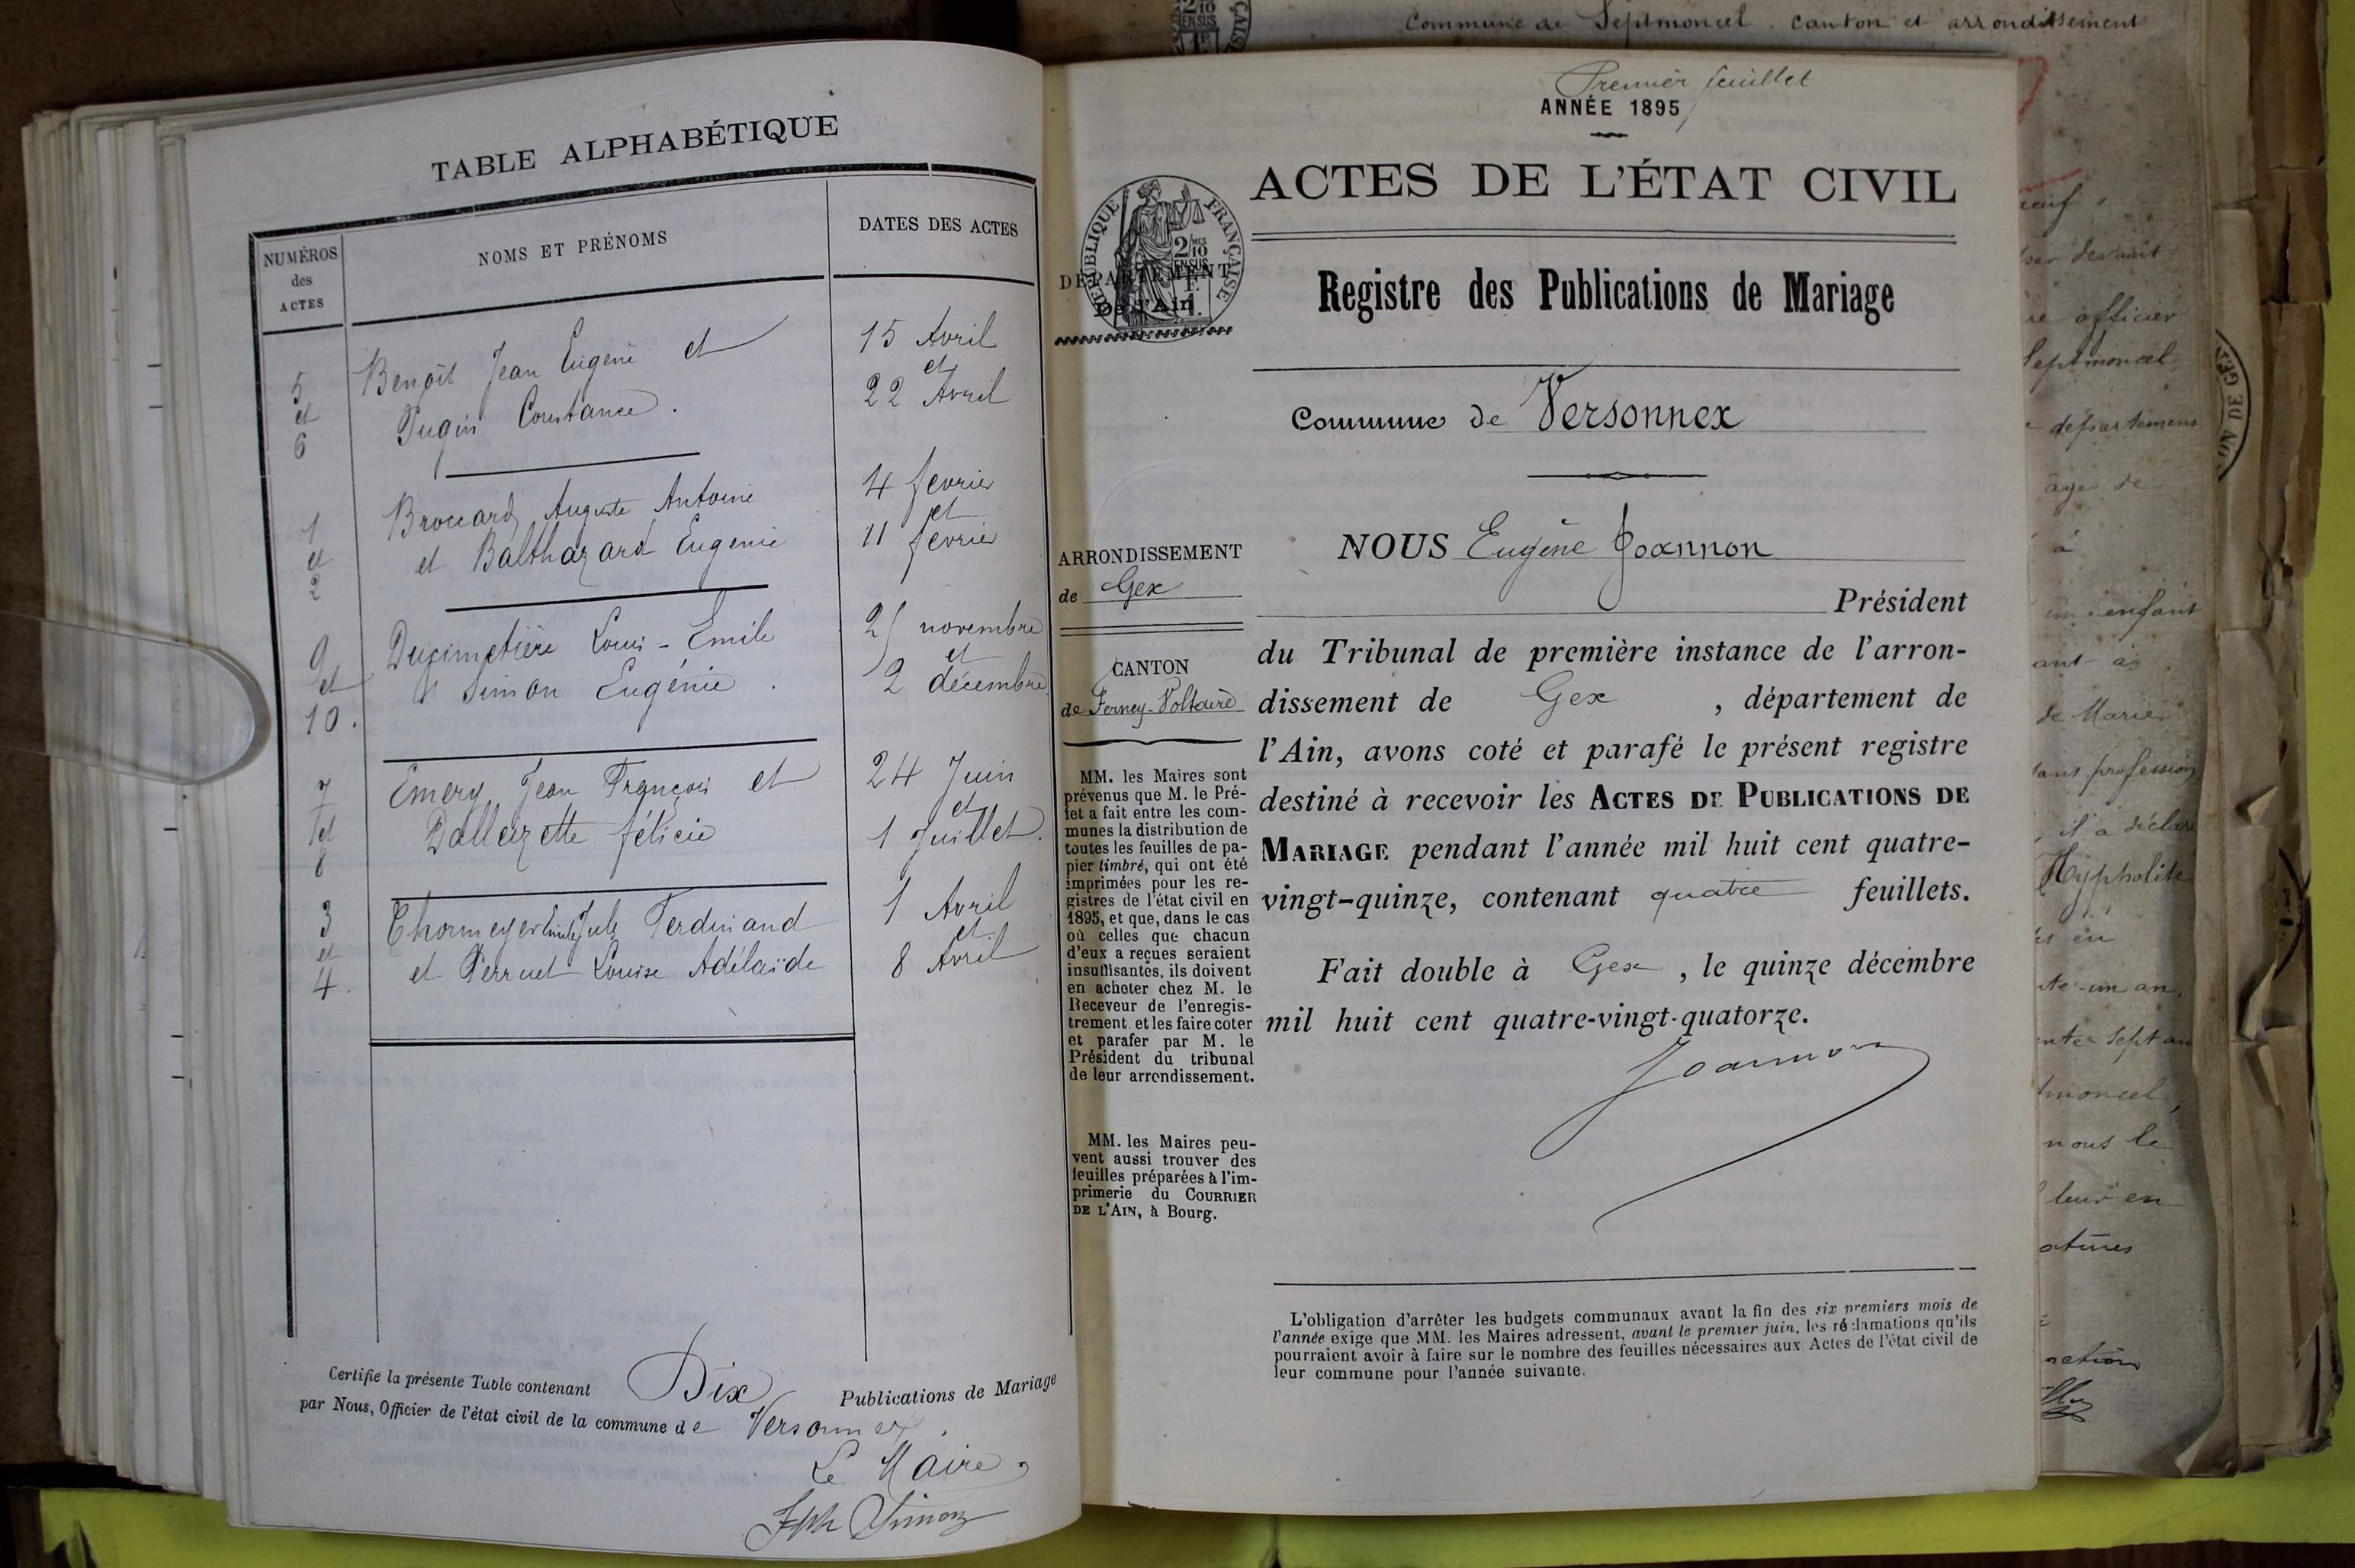 TABLE ALPHABÉTIQUE
NUMÉROS
des
ACTES
NOMS ET PRÉNOMS
DATES DES ACTES
5
et
6
Benoît Jean Eugène et
Pugin Constance.
15 Avril
et
22 Avril
1
et
2
Broccard Auguste Antoine
et Balthazard Eugenie
4 fevrier
et
11 fevrier
9
et
10.
Ducimetière Louis-Emile
Simon Eugénie.
novembre
et
2 décembre
7
et
8
Emery Jean François et
Dalleizette félicie
24 Juin
et
1 Juillet.
3
et
4.
Ferdinand
et Perruet Louise Adélaïde
1 Avril
et
8 Avril
Certifie la présente Table contenant Dix Publications de Mariage
par Nous, Officier de l'état civil de la commune de Versonnex.
Le Maire,
Jph Simon
Premier feuillet
ANNÉE 1895
ACTES DE L'ÉTAT CIVIL
RÉPUBLIQUE FRANÇAISE
2/10
EN SUS
DÉPARTEMENT
De l'Ain
Registre des Publications de Mariage
Commune de Versonnex
ARRONDISSEMENT
de Gex
CANTON
de Ferney-Voltaire
MM. les Maires sont
prévenus que M. le Pré-
fet a fait entre les com-
munes la distribution de
toutes les feuilles de pa-
pier timbré, qui ont été
imprimées pour les re-
gistres de l'état civil en
1895, et que, dans le cas
où celles que chacun
d'eux a reçues seraient
insuffisantes, ils doivent
en acheter chez M. le
Receveur de l'enregis-
trement et les faire coter
et parafer par M. le
Président du tribunal
de leur arrondissement.
MM. les Maires peu-
vent aussi trouver des
feuilles préparées à l'im-
primerie du COURRIER
DE L'AIN, à Bourg.
NOUS Eugène Joannon
Président
du Tribunal de première instance de l'arron-
dissement de Gex, département de
l'Ain, avons coté et parafé le présent registre
destiné à recevoir les ACTES DE PUBLICATIONS DE
MARIAGE pendant l'année mil huit cent quatre-
vingt-quinze, contenant quatre feuillets.
Fait double à Gex, le quinze décembre
mil huit cent quatre-vingt-quatorze.
Joannon
L'obligation d'arrêter les budgets communaux avant la fin des six premiers mois de
l'année exige que MM. les Maires adressent, avant le premier juin, les réclamations qu'ils
pourraient avoir à faire sur le nombre des feuilles nécessaires aux Actes de l'état civil de
leur commune pour l'année suivante.
Commune de Septmoncel. canton et arrondissement
par devant
officier
Septmoncel
département
âge de
à
enfant
de Marie
sans profession
, il a déclaré
Hyppholite
en
un an,
sept an
nous le
leur en